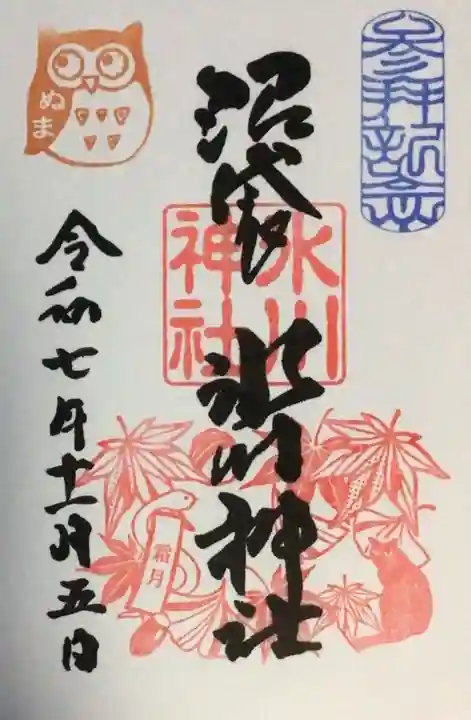 参拝記念
沼袋 氷川神社
氷川
神社
霜月
ぬま
令和七年十一月五日